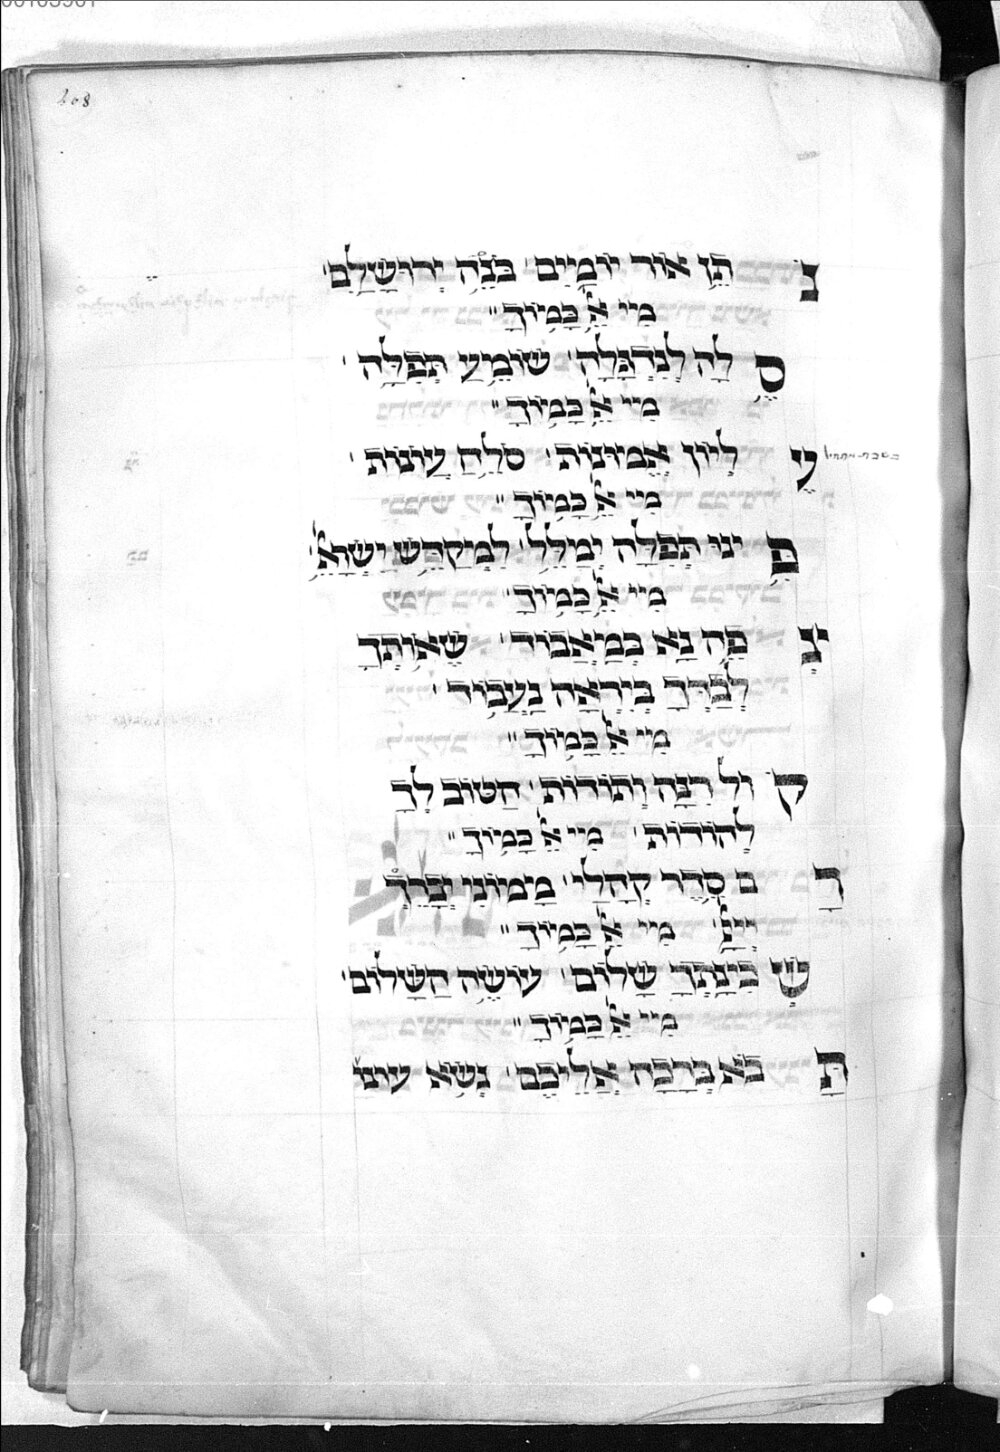 408
נ תֵן אור יומַיִם׳ בּנֵה יְרוּשָׁלַם׳
מִי אֵל כָּמוֹךָ״
סְ לַה לְנִדְגָּלָה׳ שׁוֹמֵעַ תְּפִלָּה׳
מִי אֵל כָּמוֹךָ״
עֶ לְיוֹן אֱמוּנוֹת׳ סלַח עֲוֹנוֹת׳
מִי אֵל כָּמוֹךָ״
פִּ ינוּ תְּפִלָּה יְמַלֵּל׳ לְמִקְדָּשׁ יִשְׂרָאֵל׳
מִי אֵל כָּמוֹךָ׳
יִצְ פֶּה נָא כְּמֵאֲבוֹד׳ שֶׁאוֹתְךָ
לְבַדְּךָ בְּיִרְאָה נַעֲבוֹד׳
מִי אֵל כָּמוֹךָ״
ק ול רִנָּה וְתוֹדוֹת׳ הַטּוֹב לְךָ
לְהוֹדוֹת׳ מִי אֵל כָּמוֹךָ״
רָ ם סַדֵּר קְהָלַי׳ מִימוֹנִי יְבָרֵךְ
מִי אֵל כָּמוֹךָ״
שְׁ כִינָתְךָ שָׁלוֹם׳ עוֹשֶׂה הַשָּׁלוֹם׳
מִי אֵל כָּמוֹךָ״
תָּ בֹא בְּרָכָה אֲלֵיכֶם׳ נָשֹא